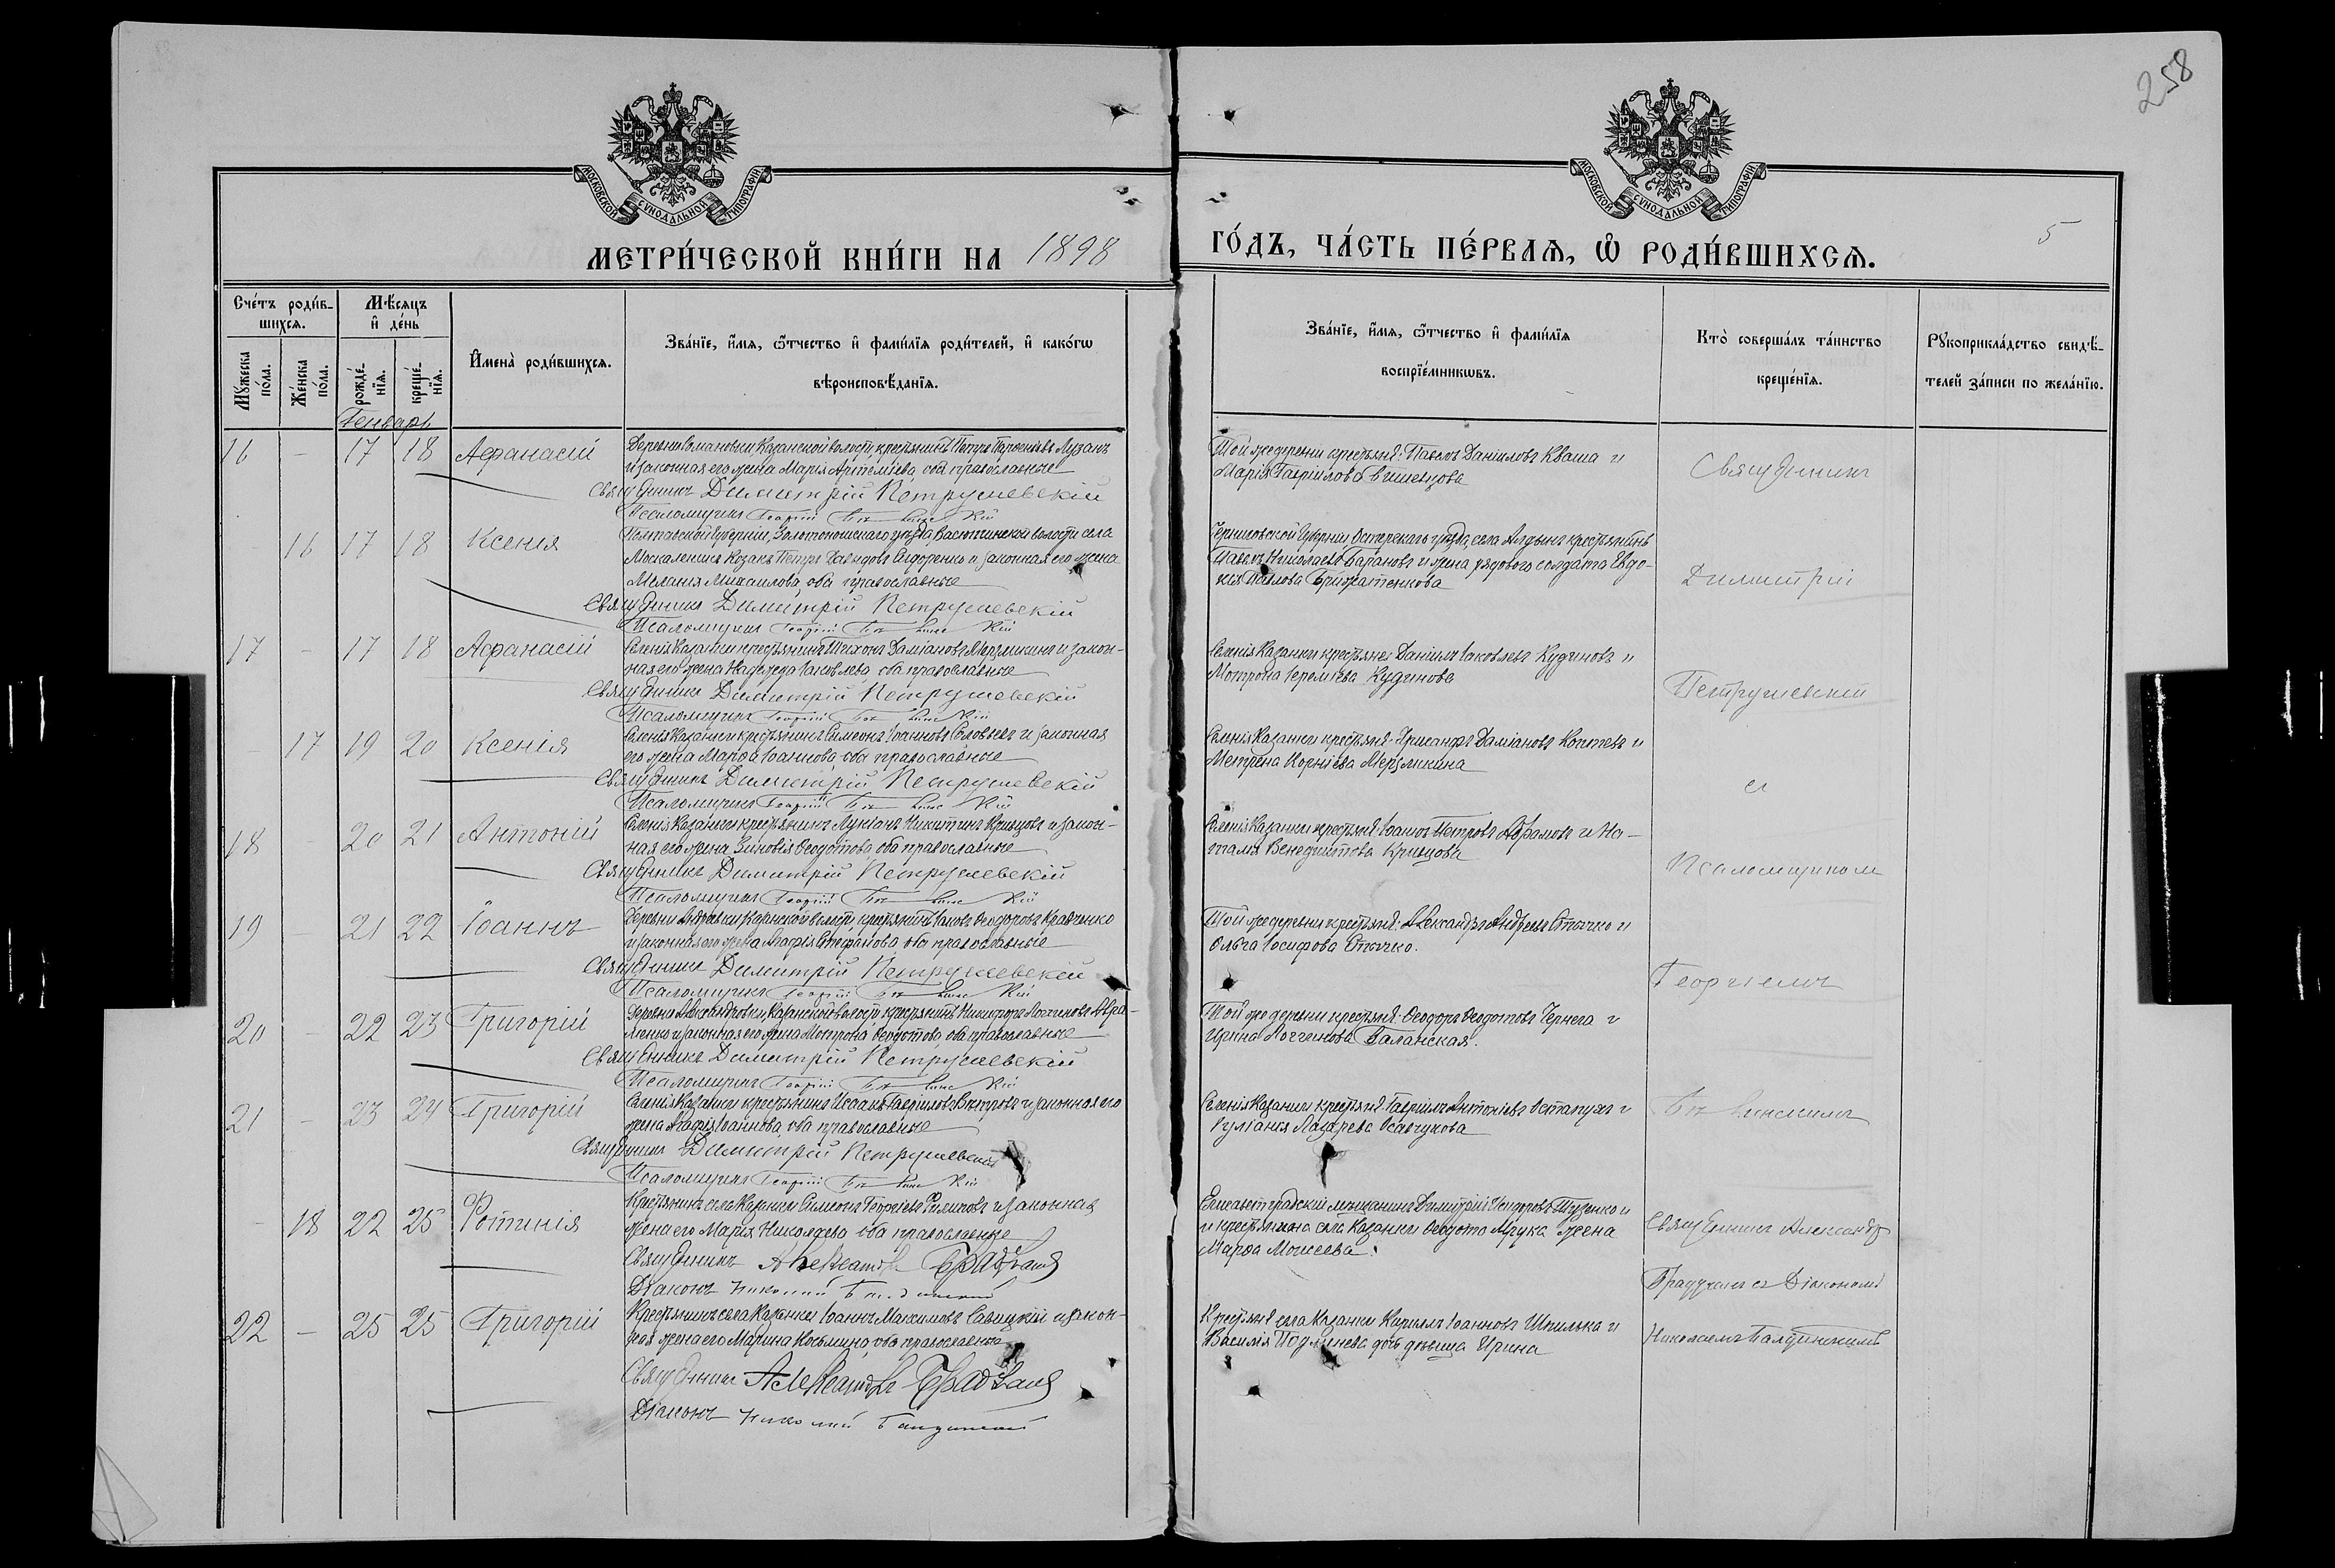 258
МОСКОВСКОЙ СУНОДАЛЬНОЙ ТИПОГРАФІИ
МОСКОВСКОЙ СУНОДАЛЬНОЙ ТИПОГРАФІИ
5
МЕТРИ́ЧЕСКОЙ КНИ́ГИ НА 1898
ГО́ДЪ, ЧА́СТЬ ПЕ́РВАѦ, Ѡ҆ РОДИ́ВШИХСѦ.
Сче́тъ роди́в-
шихсѧ.
Мѣ́сѧцъ
и҆ де́нь
Мꙋ́жеска по́ла.
Же́нска по́ла.
рожде́-
нїѧ.
креще́-
нїѧ.
И҆мена̀ роди́вшихсѧ.
Зва́нїе, и҆́мѧ, ѻ҆́тчество и҆ фами́лїѧ роди́телей, и҆ како́гѡ
вѣроисповѣ́данїѧ.
Зва́нїе, и҆́мѧ, ѻ҆́тчество и҆ фами́лїѧ
воспрїе́мникѡвъ.
Кто̀ соверша́лъ та́инство
креще́нїѧ.
Рꙋкоприкла́дство свидѣ́-
телей за́писи по жела́нїю.
Генварь
16 - 17 18 Афанасій
Деревни Романовки, Казанской волости, крестьянинъ Петръ Парѳеніевъ Лузанъ
и законная его жена Марія Артеміева, оба православные
Священникъ Димитрій Петрушевскій
Псаломщикъ Георгій
Той же деревни крестьяне: Павелъ Даніиловъ Кваша и
Марія Гавріилова
Священникъ
16 17 18 Ксенія
Полтавской губерніи, Золотоношскаго уѣзда, Васютинской волости села
Москаленокъ козакъ Петръ Давидовъ Сидоренко и законная его жена
Меланія Михаилова, оба православные
Священникъ Димитрій Петрушевскій
Псаломщикъ Георгій
Черниговской губерніи Остерскаго уѣзда, села крестьянинъ
Павелъ Николаевъ Барановъ и жена рядового солдата Евдо-
кія Павлова
Димитрій
17 - 17 18 Афанасій
Селенія Казанки крестьянинъ Тихонъ Даміановъ Мерзликинъ и закон-
ная его жена Надежда Іаковлева, оба православные
Священникъ Димитрій Петрушевскій
Псаломщикъ Георгій
Селенія Казанки крестьяне Даніилъ Іаковлевъ Кудиновъ и
Мотрона Іереміева Кудинова
Петрушевскій
- 17 19 20 Ксенія
Селенія Казанки крестьянинъ Симеонъ Іоанновъ Соловьевъ и законная
его жена Марѳа Іоаннова, оба православные
Священникъ Димитрій Петрушевскій
Псаломщикъ Георгій
Селенія Казанки крестьяне: Хрисанфъ Даміановъ Коптевъ и
Метрена Корніева Мерзликина
съ
18 - 20 21 Антоній
Селенія Казанки крестьянинъ Лукіанъ Никитинъ Кривцовъ и закон-
ная его жена Зиновія Ѳеодотова, оба православные
Священникъ Димитрій Петрушевскій
Псаломщикъ Георгій
Селенія Казанки крестьяне: Іоаннъ Петровъ Абрамовъ и На-
талія Бенедиктова Кривцова
Псаломщикомъ
19 - 21 22 Іоаннъ
Деревни Андреевки, Казанской волости, крестьянинъ Іаковъ Ѳеодоровъ Кравченко
и законная его жена Агафія Стефанова, оба православные
Священникъ Димитрій Петрушевскій
Псаломщикъ Георгій
Той же деревни крестьяне: Александръ Андреевъ и
Ольга Іосифова
Георгіемъ
20 - 22 23 Григорій
Деревни Александровки, Казанской волости крестьянинъ Никифоръ Логгиновъ Авра-
менко и законная его жена Мотрона Ѳеодотова, оба православные
Священникъ Димитрій Петрушевскій
Псаломщикъ Георгій
Той же деревни крестьяне: Ѳеодоръ Ѳеодотовъ Чернега и
Ирина Логгинова Баланская.
21 - 23 24 Григорій
Селенія Казанки крестьянинъ Исаакъ Гавріиловъ Вѣтровъ и законная его
жена Агафія Іоаннова, оба православные
Священникъ Димитрій Петрушевскій
Псаломщикъ Георгій
Селенія Казанки крестьяне: Гавріилъ Антоніевъ Остапухъ и
Іуліанія Лазарева Осавчукова
- 18 22 25 Фотинія
Крестьянинъ села Казанки Симеонъ Георгіевъ Филиповъ и законная
жена его Марія Николаева, оба православные
Священникъ Александръ
Діаконъ Николай
Елисаветградскій мѣщанинъ Димитрій Исидоровъ Тузенко и
и крестьянина села Казанки Ѳеодота жена
Марѳа Моисеева.
Священникъ Александръ
съ Діакономъ
22 - 25 25 Григорій
Крестьянинъ села Казанки Іоаннъ Максимовъ Савицкій и закон-
ная жена его Марина Косьмина, оба православные
Священникъ Александръ
Діаконъ Николай
Крестьяне села Казанки Кириллъ Іоанновъ Шпилька и
Василія дочь дѣвица Ирина
Николаемъ